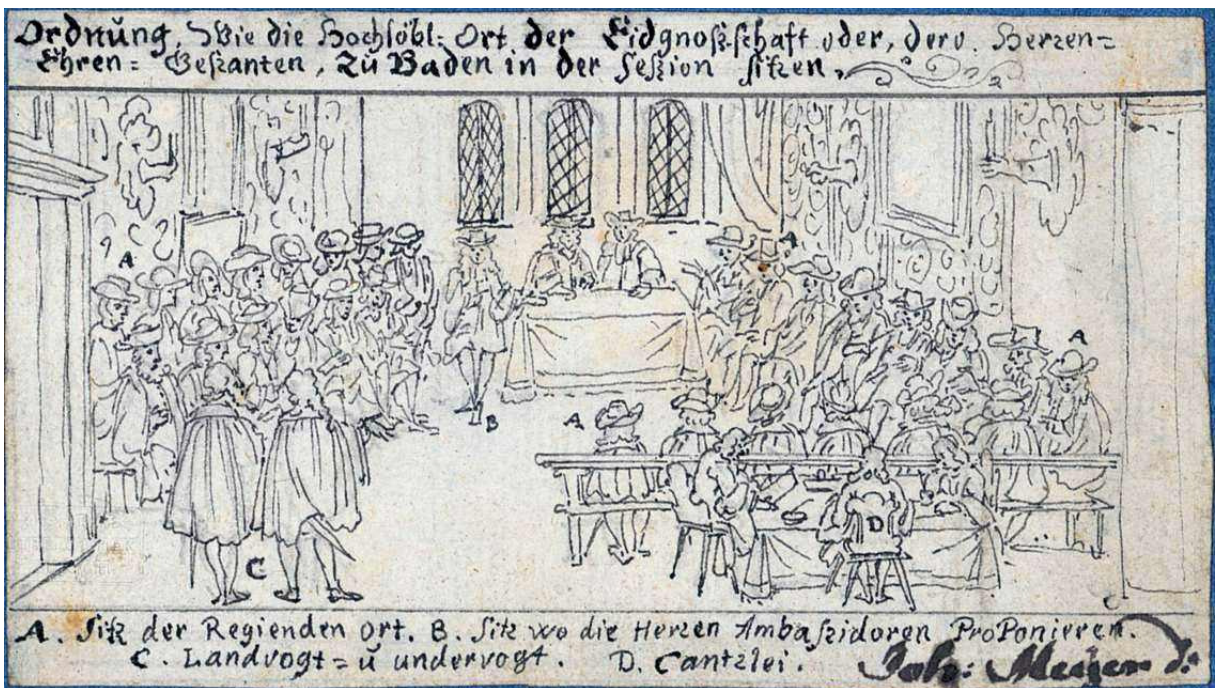 Ordnŭng, Wie die Hochlöbl: Ort der Eidgnoßschaft oder, dero. Herren=
Ehren= Gesanten, Zu Baden in der Seßion sitzen.
A
A
A
A
B
D
C
A. Sitz der Regienden Ort. B. Sitz wo die Herren Ambaßidoren ProPonieren.
C. Landvogt= ŭ undervogt. D. Cantzlei. Joh: Meyer d: